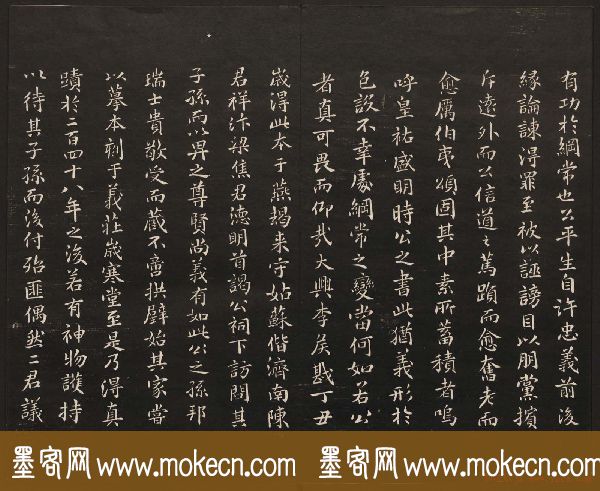 有功於綱常也公平生自許忠義前後
緣論諫得罪至被以誣謗目以朋黨擯
斥遠外而公信道之篤躓而愈奮老而
愈厲伯夷頌固其中素所蓄積者嗚
呼皇祐盛明時公之書此猶義形於
色設不幸處綱常之變當何如若公
者真可畏而仰哉大興李侯戡丁丑
歲得此本于燕朅来守姑蘇偕濟南陳
君祥汴梁焦君德明首謁公祠下訪閱其
子孫而以畀之尊賢尚義有如此公之孫邦
瑞士貴敬受而藏不啻拱璧始其家嘗
以摹本刻于義莊歲寒堂至是乃得真
蹟於二百四十八年之後若有神物護持
以待其子孫而後付殆匪偶然二君議
墨客网 www.mokecn.com 墨客网 www.mokecn.com